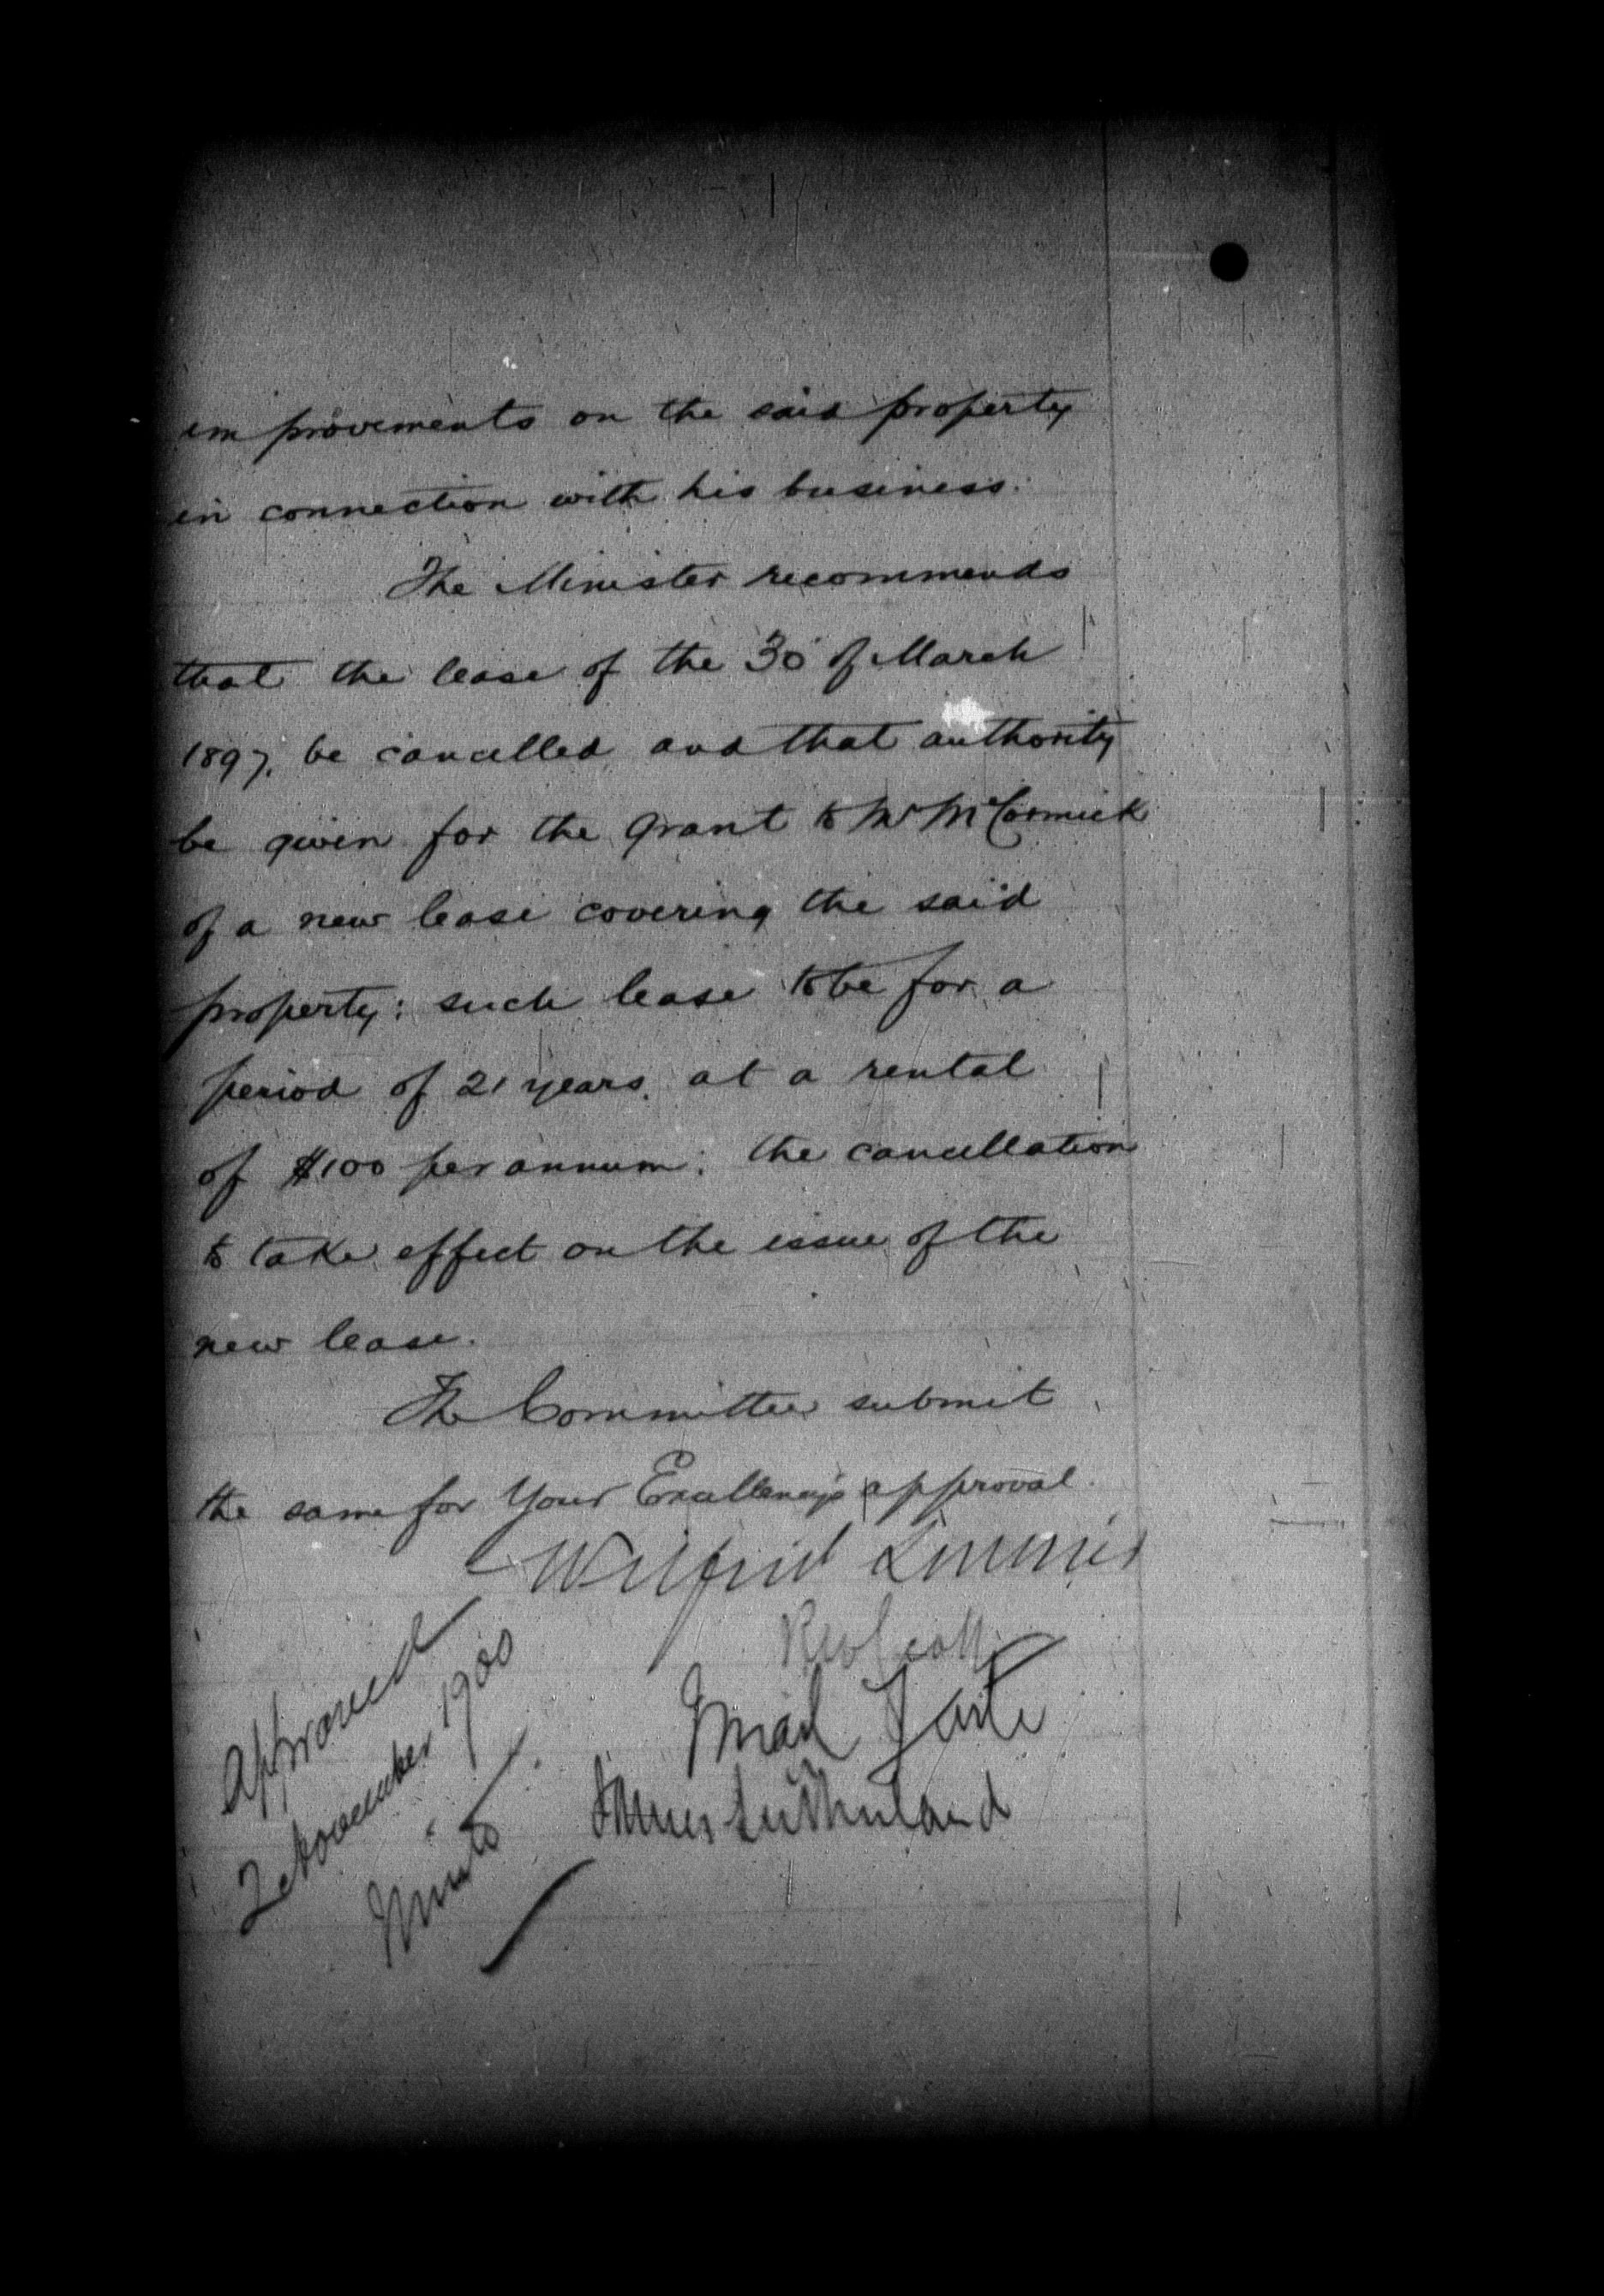 improvements on the said property
in connection with his business.
The Minister recommends
that the lease of the 30 of March
1897, be cancelled and that authority
be given for the grant to Mr McCormick
of a new lease covering the said
property: such lease to be for a
period of 21 years, at a rental
of $100 per annum: the cancellation
to take effect on the issue of the
new lease.
The Committee submit
the same for Your Excellency's approval.
Wilfrid Laurier
RW Scott
J Israel Tarte
James Sutherland
Approved
2 November 1900
Minto